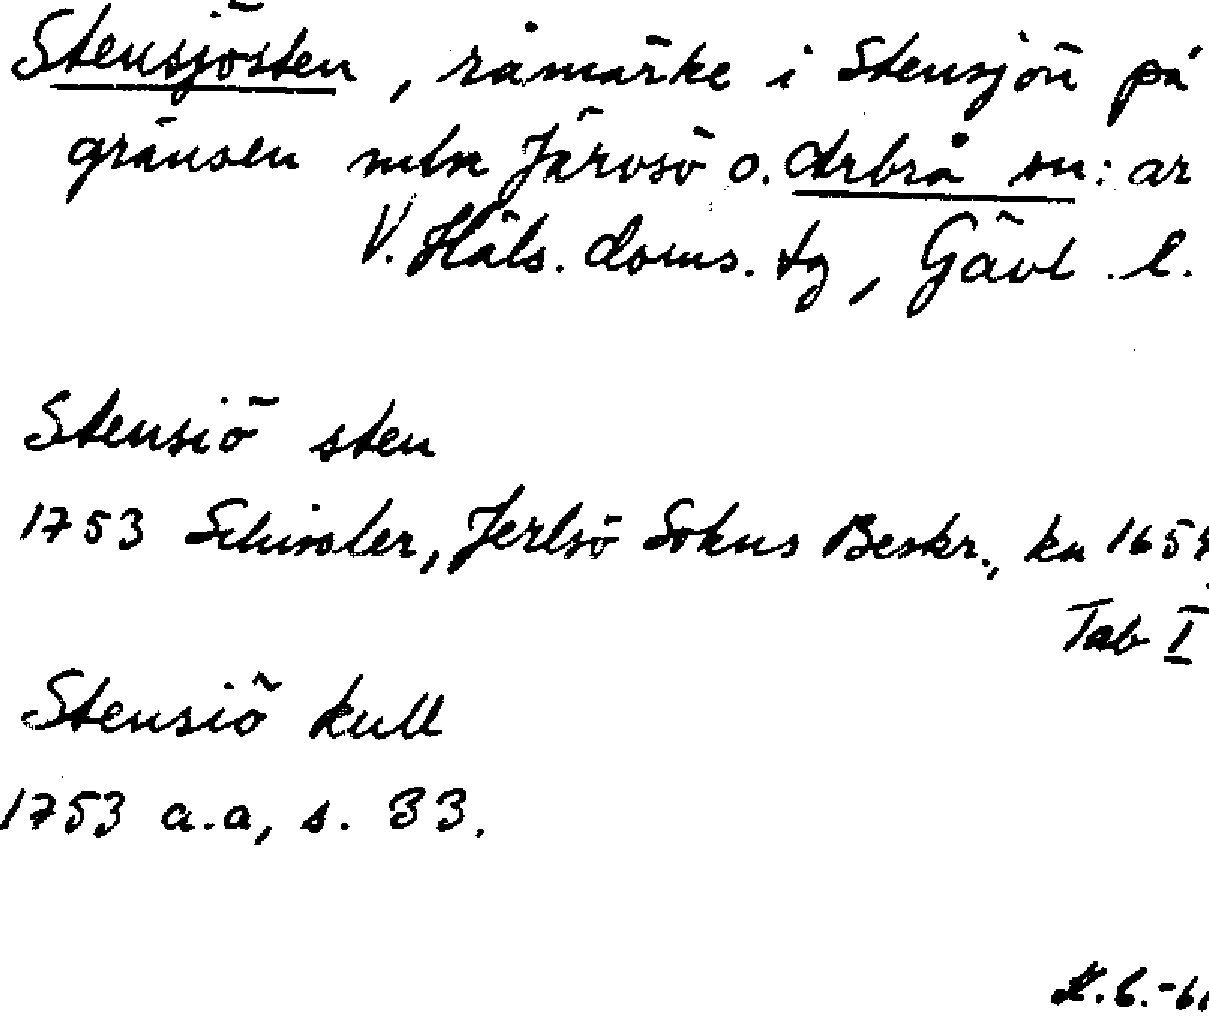 Stensjösten, råmärke i Stensjön på
gränsen mln Järvsö o. Arbrå sn:ar
V. Häls. doms. tg, Gävl. l.
Stensiö sten
1753 Schissler, Jerlsö Sokns Beskr.,
Tab I
Stensiö kull
1753 a.a, s. 33.